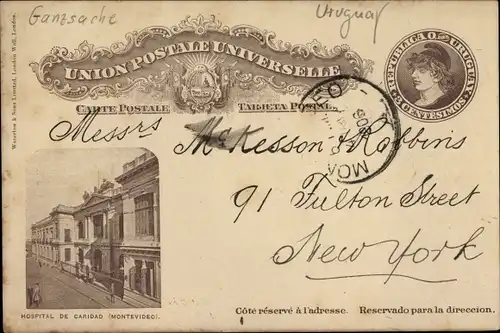 Ganzsache
Uruguay
Waterlow & Sons Limited, London Wall, London.
UNION POSTALE UNIVERSELLE
CARTE POSTALE TARJETA POSTAL
REPUBLICA O. URUGUAY
3 CENTESIMOS 3
Messrs McKesson & Robbins
91 Fulton Street
New York
HOSPITAL DE CARIDAD (MONTEVIDEO).
Côté réservé à l'adresse. Reservado para la direccion.